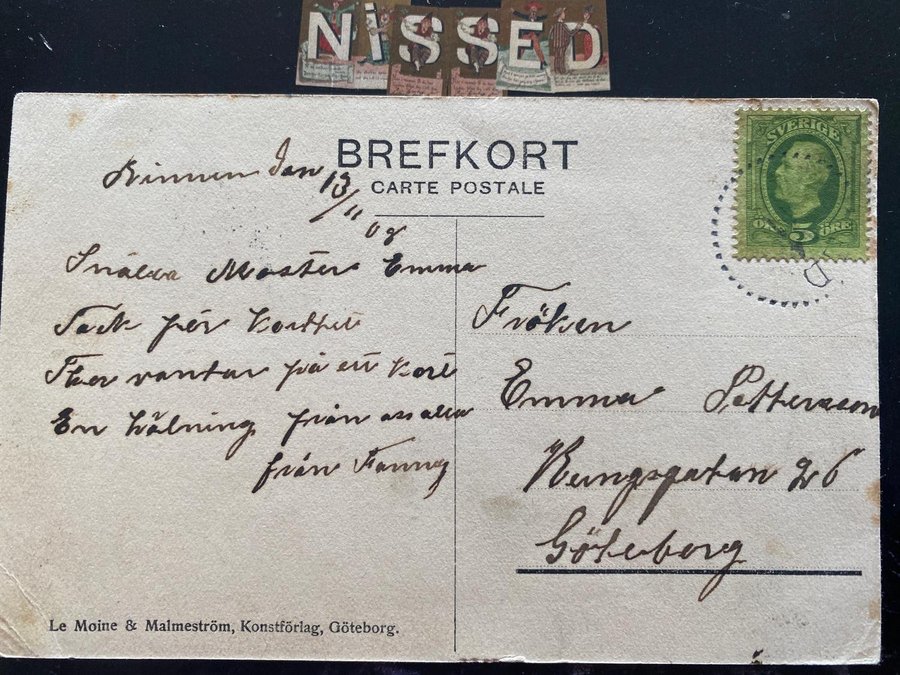 NiSSED
BREFKORT
CARTE POSTALE
den 13/11 08
SVERIGE
5
ÖRE
Snälla Moster Emma
Tack för kortet
Thor vantar på ett kort
En hälning från oss alla
från Fanny
Fröken
Emma Pettersson
Kungsgatan 26
Göteborg
Le Moine & Malmeström, Konstförlag, Göteborg.